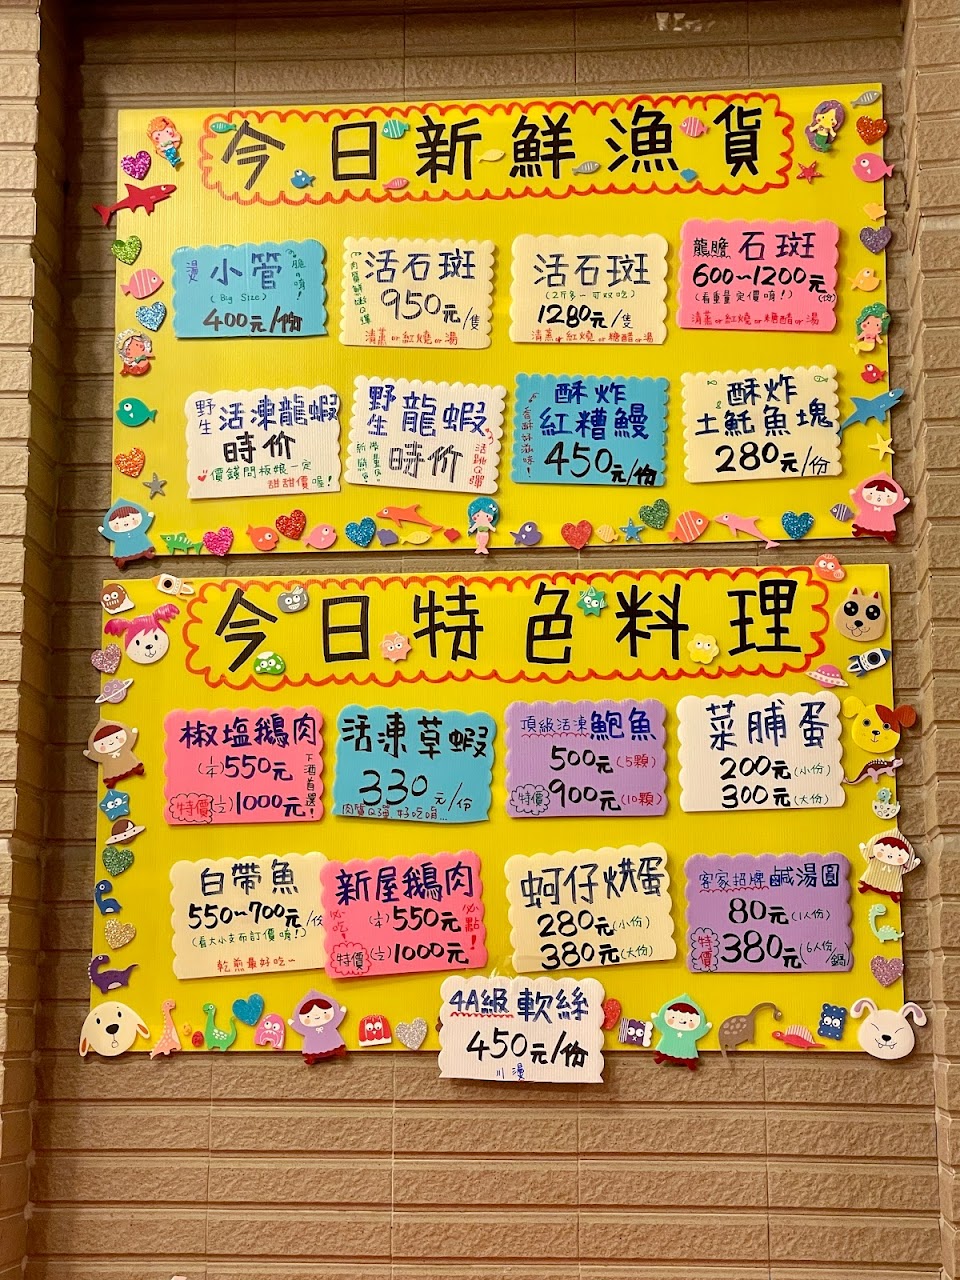 今日新鮮漁貨
小管
(Big Size)
400元/份
活石斑
950元/隻
清蒸or紅燒or湯
活石斑
(2斤多~可双吃)
1280元/隻
清蒸or紅燒or糖醋or湯
龍膽 石斑
600~1200元(份)
(看重量定價唷!)
清蒸or紅燒or糖醋or湯
野生 活凍龍蝦
時价
價錢問板娘一定
甜甜價喔!
野生 龍蝦
時价
活跳Q彈
酥炸
紅糟鰻
450元/份
酥炸
土魠魚塊
280元/份
今日特色料理
椒塩鵝肉
(1/4)550元
特價 (1/2)1000元
下酒首選!
活凍草蝦
330元/份
肉質Q彈 好吃唷...
頂級活凍鮑魚
500元(5顆)
特價 900元(10顆)
菜脯蛋
200元(小份)
300元(大份)
白帶魚
550~700元/份
(看大小支而訂價唷!)
乾煎最好吃~
新屋鵝肉
必吃!
(1/4)550元
必點!
特價 (1/2)1000元
蚵仔烘蛋
280元(小份)
380元(大份)
客家招牌鹹湯圓
80元(1人份)
特價 380元(6人份/鍋)
4A級軟絲
450元/份
川燙